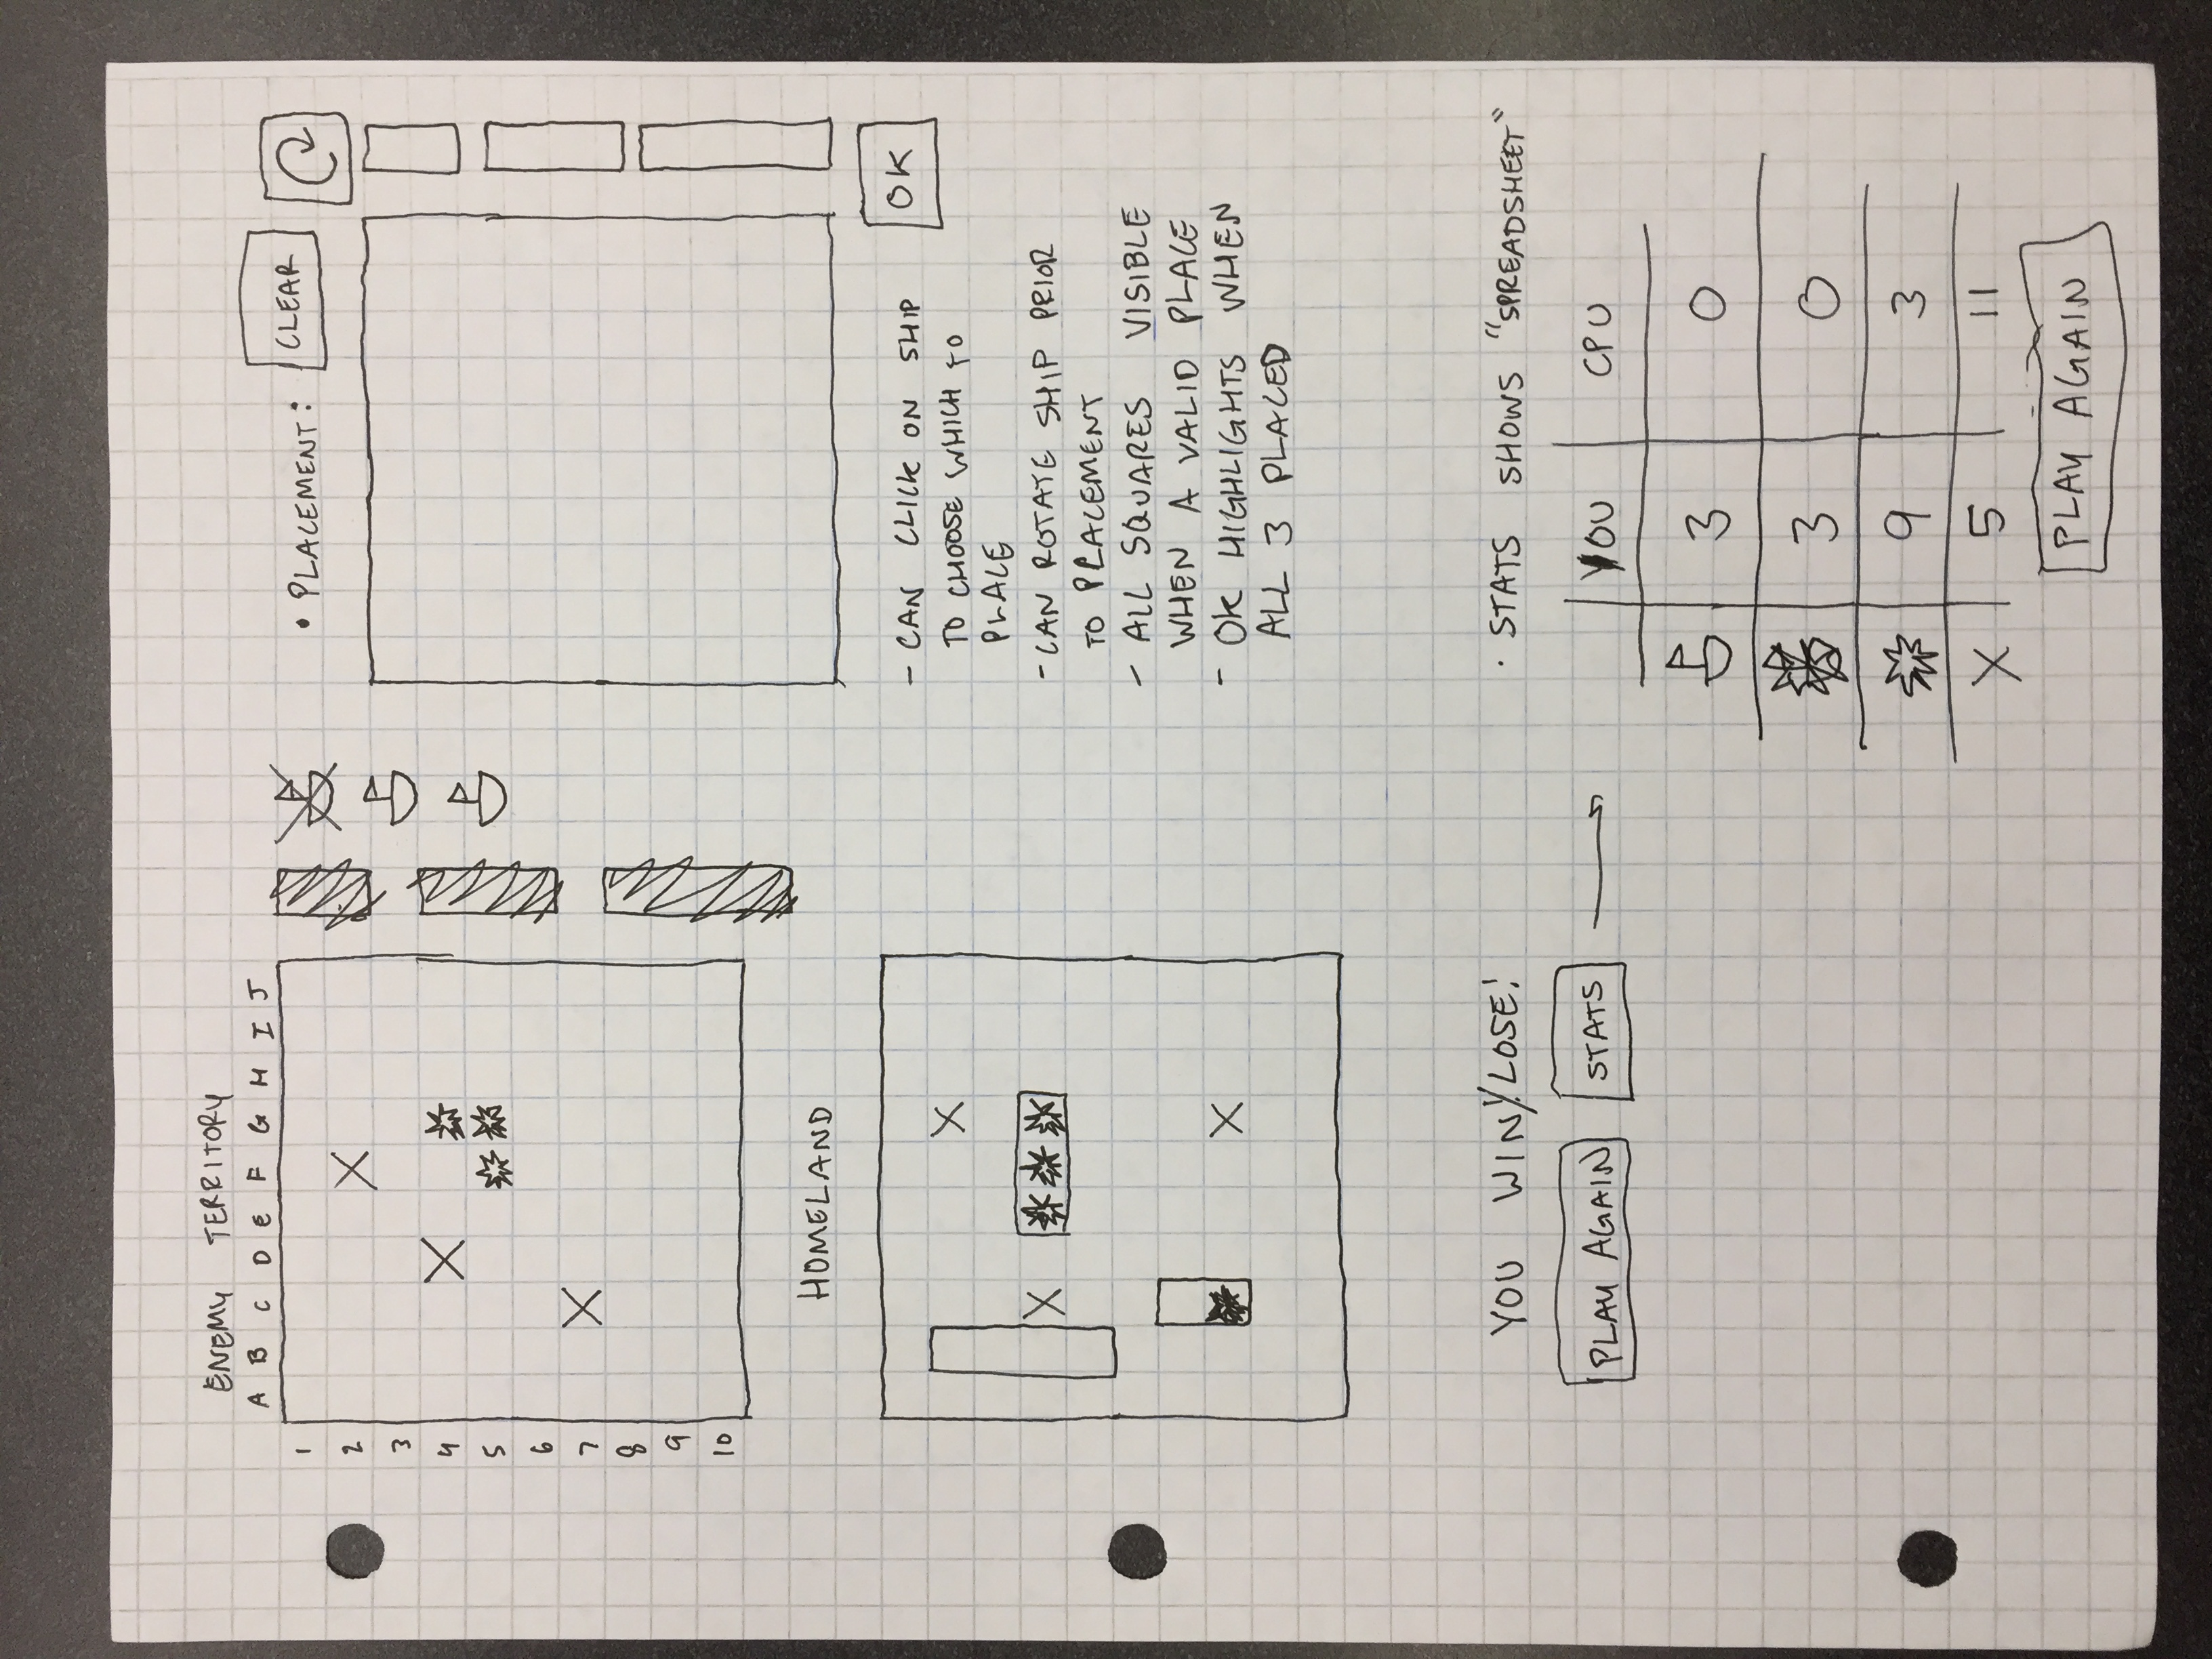 ENEMY TERRITORY
A B C D E F G H I J
1
2
3
4
5
6
7
8
9
10
HOMELAND
YOU WIN!/LOSE!
PLAY AGAIN
STATS
• PLACEMENT:
CLEAR
OK
- CAN CLICK ON SHIP
TO CHOOSE WHICH TO
PLACE
- CAN ROTATE SHIP PRIOR
TO PLACEMENT
- ALL SQUARES VISIBLE
WHEN A VALID PLACE
- OK HIGHLIGHTS WHEN
ALL 3 PLACED
• STATS SHOWS "SPREADSHEET"
YOU CPU
3 0
3 0
9 3
X 5 11
PLAY AGAIN